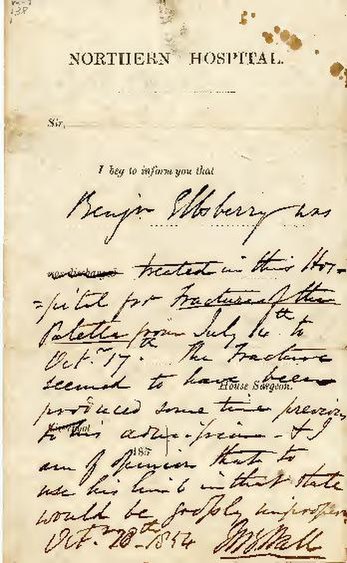 138
NORTHERN HOSPITAL.
Sir,
I beg to inform you that
Benjn Ellsberry was
was discharged treated in this Hos-
=pital for Fracture of the
Patella from July 14th to
Octr 17th. The Fracture
seemed to have been
House Surgeon.
produced some time previous
Liverpool
to his admission - & I
185
am of opinion that to
use his limb in that state
would be grossly improper
Octr 28th 1854